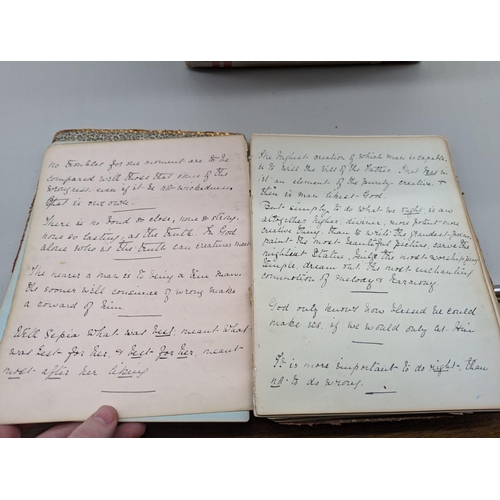 no troubles for one moment are to be
compared with those that come of the
wrongness, even if it be not wickedness,
that is our own.
There is no bond so close, none so strong,
none so lasting, as the truth. In God
alone who is the truth can creatures meet
The nearer a man is to being a fine man,
the sooner will conscience of wrong make
a coward of him.
With Sepia what was best meant what
was best for her, & best for her, meant
most after her liking
The highest creation of which man is capable,
is to will the will of the Father. That has in
it an element of the purely creative, &
then is man likest God.
But simply to do what we ought is an
altogether higher, diviner, more potent, more
creative thing than to write the grandest poem,
paint the most beautiful picture, carve the
mightiest statue, build the most worshipping
temple, dream out the most enchanting
commotion of melody & harmony.
God only knows how blessed he could
make us, if we would only let Him
It is more important to do right, than
not to do wrong.